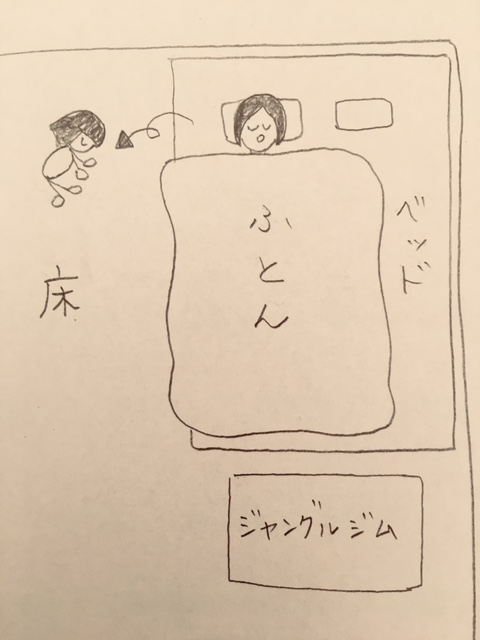 ふとん
ベッド
床
ジャングルジム